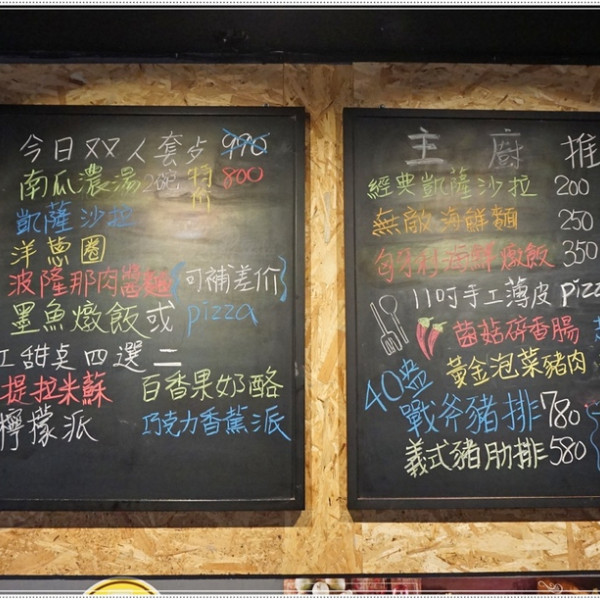 今日双人套歺 990
南瓜濃湯2碗 特价 800
凱薩沙拉
洋蔥圈
波隆那肉醬麵 {可補差价}
墨魚燉飯或 pizza
工甜桌四選二
提拉米蘇 百香果奶酪
檸檬派 巧克力香蕉派
主廚推
經典凱薩沙拉 200
無敵海鮮麵 250
匈牙利海鮮燉飯 350
11吋手工薄皮 pizz
菌菇碎香腸
黃金泡菜豬肉
40盎
戰斧豬排 780
義式豬肋排 580